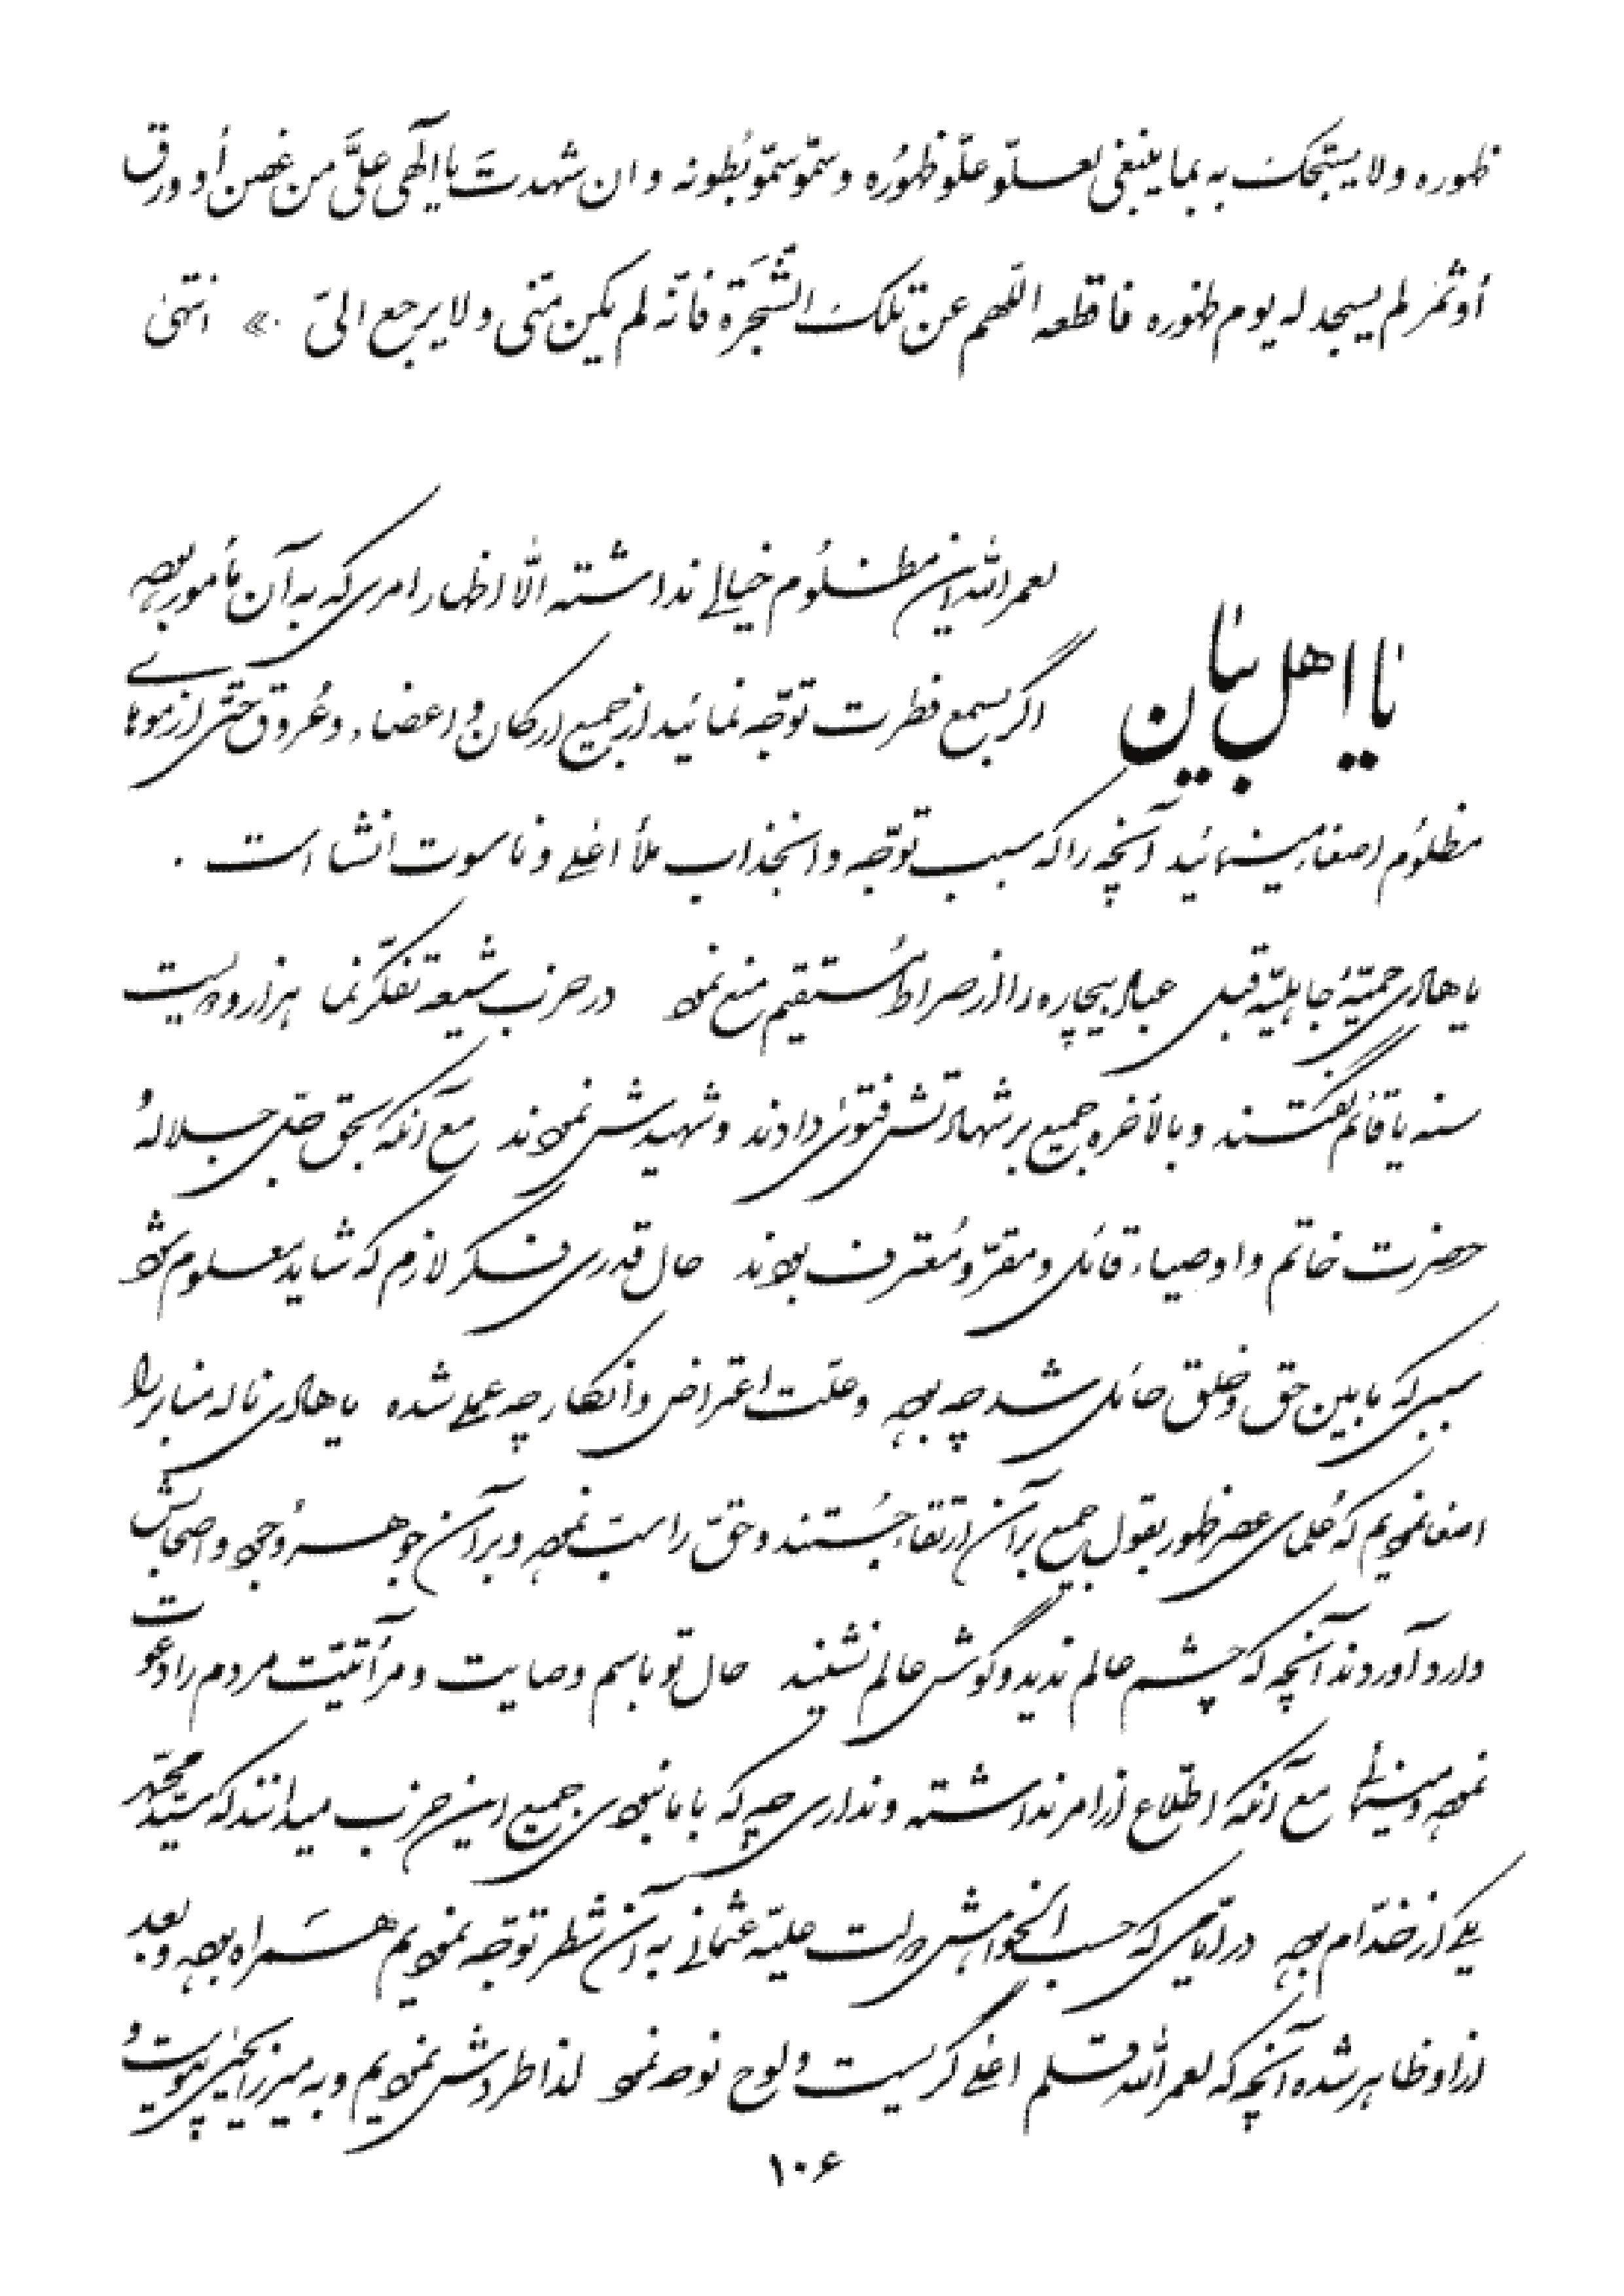 ظهوره ولا يستبحک به بما ينبغی لعلّو علّو ظهُوره و سمّو سمّو بُطونه و ان شهدتَ يا الٓهی علیَّ من غصن أو ورق
أو ثمر لم يسجد له يوم ظهوره فاقطعه اللّهم عن تلکَ الشّجَرَة فانّه لم يکن منّی ولا يرجع الیّ .» انتهیٰ
لعمر اللّه اين مظلُوم خيالی نداشته الّا اظهار امری که به آن مأمور بوده
يا اهل بيان
اگر بسمع فطرت توجّه نمائيد از جميع ارکان و اعضاء و عُروق حتّی از موهای
مظلُوم اصغا مينمائيد آنچه را که سبب توجّه و انجذاب ملأ اعلی و ناسوت انشا است .
يا هادی حميّهٔ جاهليّه قبل عباد بيچاره را از صراط مُستقيم منع نمود در حزب شيعه تفکّر نما هزار و دويست
سنه يا قائم گفتند و بالأخره جميع بر شهادتش فتویٰ دادند و شهيدش نمودند مع آنکه بحق جلّ جلالهُ
حضرت خاتم و اوصياء قائل و مقرّ و مُعترف بودند حال قدری فکر لازم که شايد معلوم شود
سببی که ما بين حق و خلق حائل شد چه بوده و علّت اعتراض و انکار چه عملی شده يا هادی ناله منابر را
اصغا نموديم که عُلمای عصر ظهور بقول جميع بر آن ارتقاء جُستند و حقّ را سبّ نموده و بر آن جوهر وُجود و اصحابش
وارد آوردند آنچه که چشم عالم نديد و گوش عالم نشنيد حال تو باسم وصايت و مرآتيّت مردم را دعوت
نموده و مينمائی مع آنکه اطّلاع از امر نداشته و نداری چه که با ما نبودی جميع اين حزب ميدانند که سيّد محمّد
يکی از خدّام بوده در ايّامی که حسب الخواهش دولت عليّه عثمانی به آن شطر توجّه نموديم همراه بوده و بعد
از او ظاهر شده آنچه که لعمر اللّه قلم اعلی گريست و لوح نوحه نمود لذا طردش نموديم و به ميرزا يحيیٰ پيوست و
۱۰۶